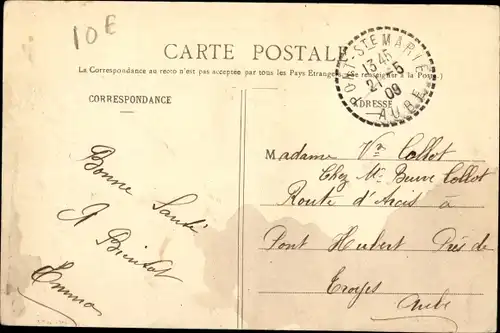 10E
CARTE POSTALE
La Correspondance au recto n'est pas acceptée par tous les Pays Etrangers. (Se renseigner à la Poste.)
CORRESPONDANCE
ADRESSE
PONT-STE MARIE
13 45
21 -5
09
AUBE
Bonne Santé
A Bientot
Emma
Madame Vve Collot
Chez Mr Collot
Route d'Arcis à
Pont Hubert Près de
Troyes
Aube